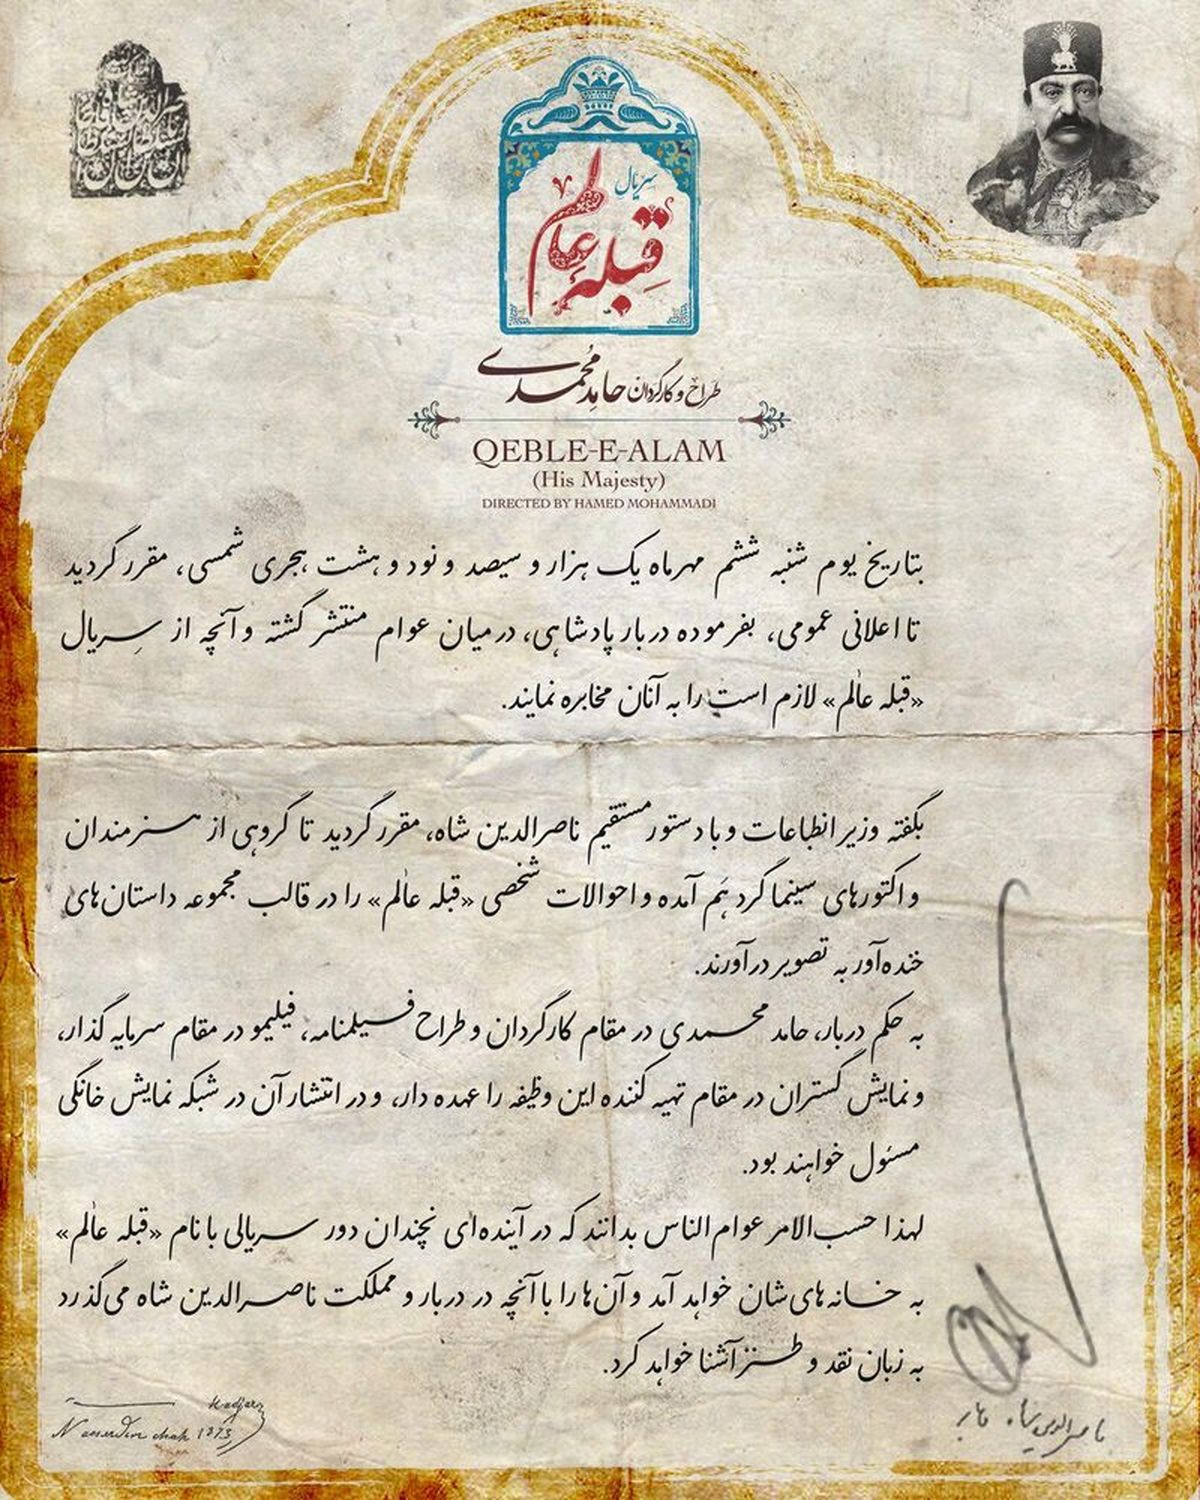 سریال
قبله عالم
طراح و کارگردان حامد محمدی
QEBLE-E-ALAM
(His Majesty)
DIRECTED BY HAMED MOHAMMADI
بتاریخ یوم شنبه ششم مهرماه یک هزار و سیصد و نود و هشت هجری شمسی، مقرر گردید
تا اعلانی عمومی، بفرموده دربار پادشاهی، در میان عوام منتشر گشته و آنچه از سریال
«قبله عالم» لازم است را به آنان مخابره نمایند.
بگفته وزیر انطباعات و با دستور مستقیم ناصرالدین شاه، مقرر گردید تا گروهی از هنرمندان
و اکتورهای سینما گرد هم آمده و احوالات شخصی «قبله عالم» را در قالب مجموعه داستان‌های
خنده‌آور به تصویر درآورند.
به حکم دربار، حامد محمدی در مقام کارگردان و طراح فیلمنامه، فیلیمو در مقام سرمایه گذار،
و نمایش گستران در مقام تهیه کننده این وظیفه را عهده دار، و در انتشار آن در شبکه نمایش خانگی
مسئول خواهند بود.
لهذا حسب‌الامر عوام الناس بدانند که در آینده‌ای نچندان دور سریالی با نام «قبله عالم»
به خانه‌های‌شان خواهد آمد و آن‌ها را با آنچه در دربار و مملکت ناصرالدین شاه می‌گذرد
به زبان نقد و طنز آشنا خواهد کرد.
Kadjar
Nasserdin chah 1873
ناصرالدین شاه قاجار